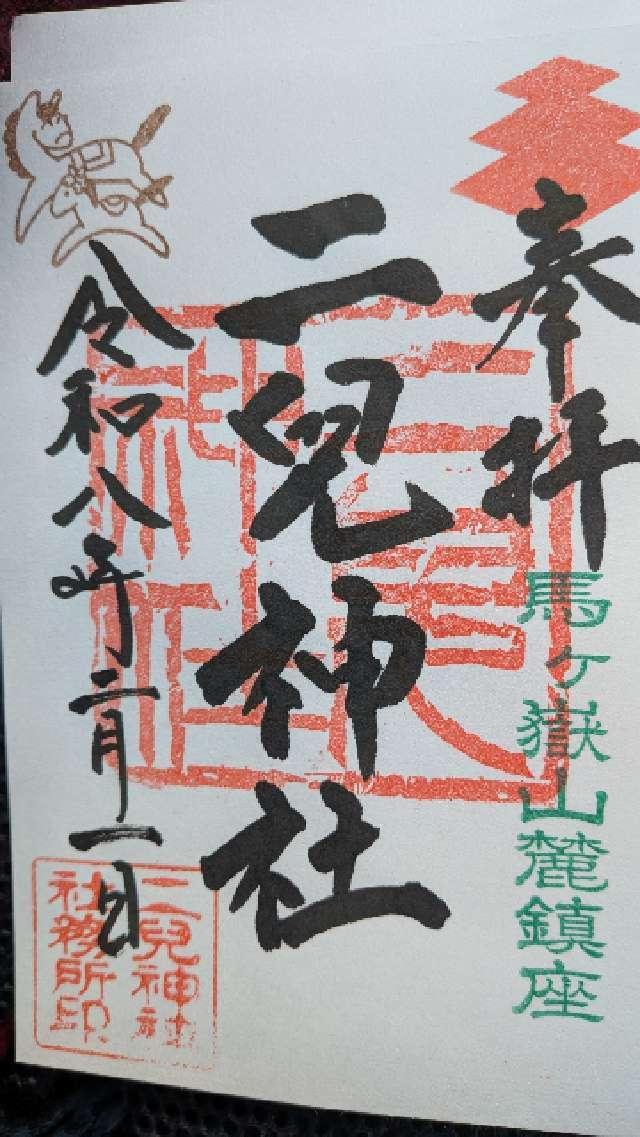 奉拝
馬ヶ嶽山麓鎮座
二兒神社
二兒神社
令和八年二月一日
二兒神社
社務所印